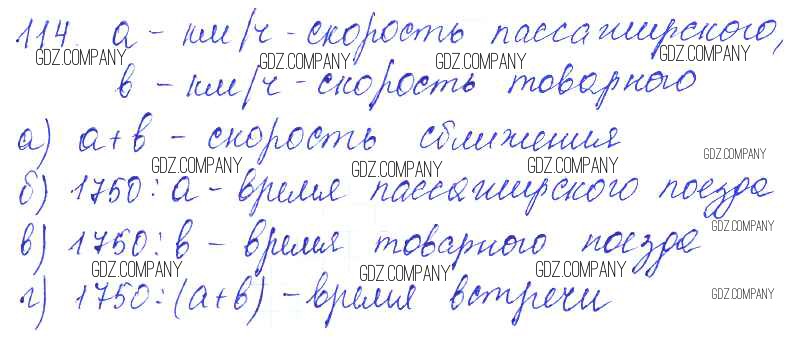 114. a - км/ч - скорость пассажирского,
GDZ.COMPANY GDZ.COMPANY GDZ.COMPANY GDZ.COMPANY
в - км/ч - скорость товарного
а) a+в - скорость сближения
GDZ.COMPANY GDZ.COMPANY GDZ.COMPANY GDZ.COMPANY
б) 1750:a - время пассажирского поезда
в) 1750:в - время товарного поезда
GDZ.COMPANY
GDZ.COMPANY GDZ.COMPANY GDZ.COMPANY
г) 1750:(a+в) - время встречи
GDZ.COMPANY